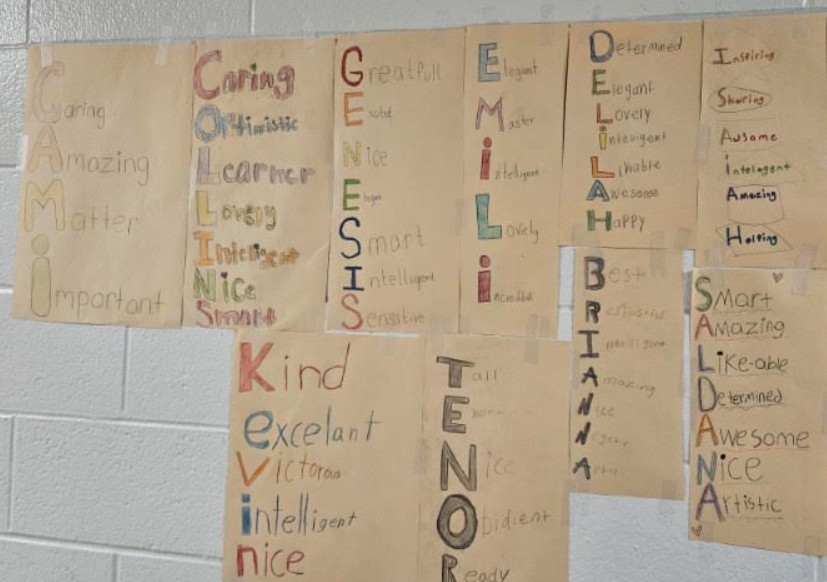 Caring
Amazing
Matter
important
Caring
Optimistic
Learner
Lovely
Inteligent
Nice
Smart
Greatfull
Nice
Elegent
Smart
Intelligent
Sensitive
Elegant
Master
intelligent
Lovely
incredible
Determined
Elegant
Lovely
intevigent
Likable
Awesome
Happy
Inspiring
Sharing
Ausome
intelegent
Amazing
Helping
Kind
excelant
Victorous
intelligent
nice
Tall
Nice
Obidient
Ready
Best
Intelligent
Amazing
Nice
SMart
AMazing
LiKe-able
Determined
Awesome
Nice
Artistic